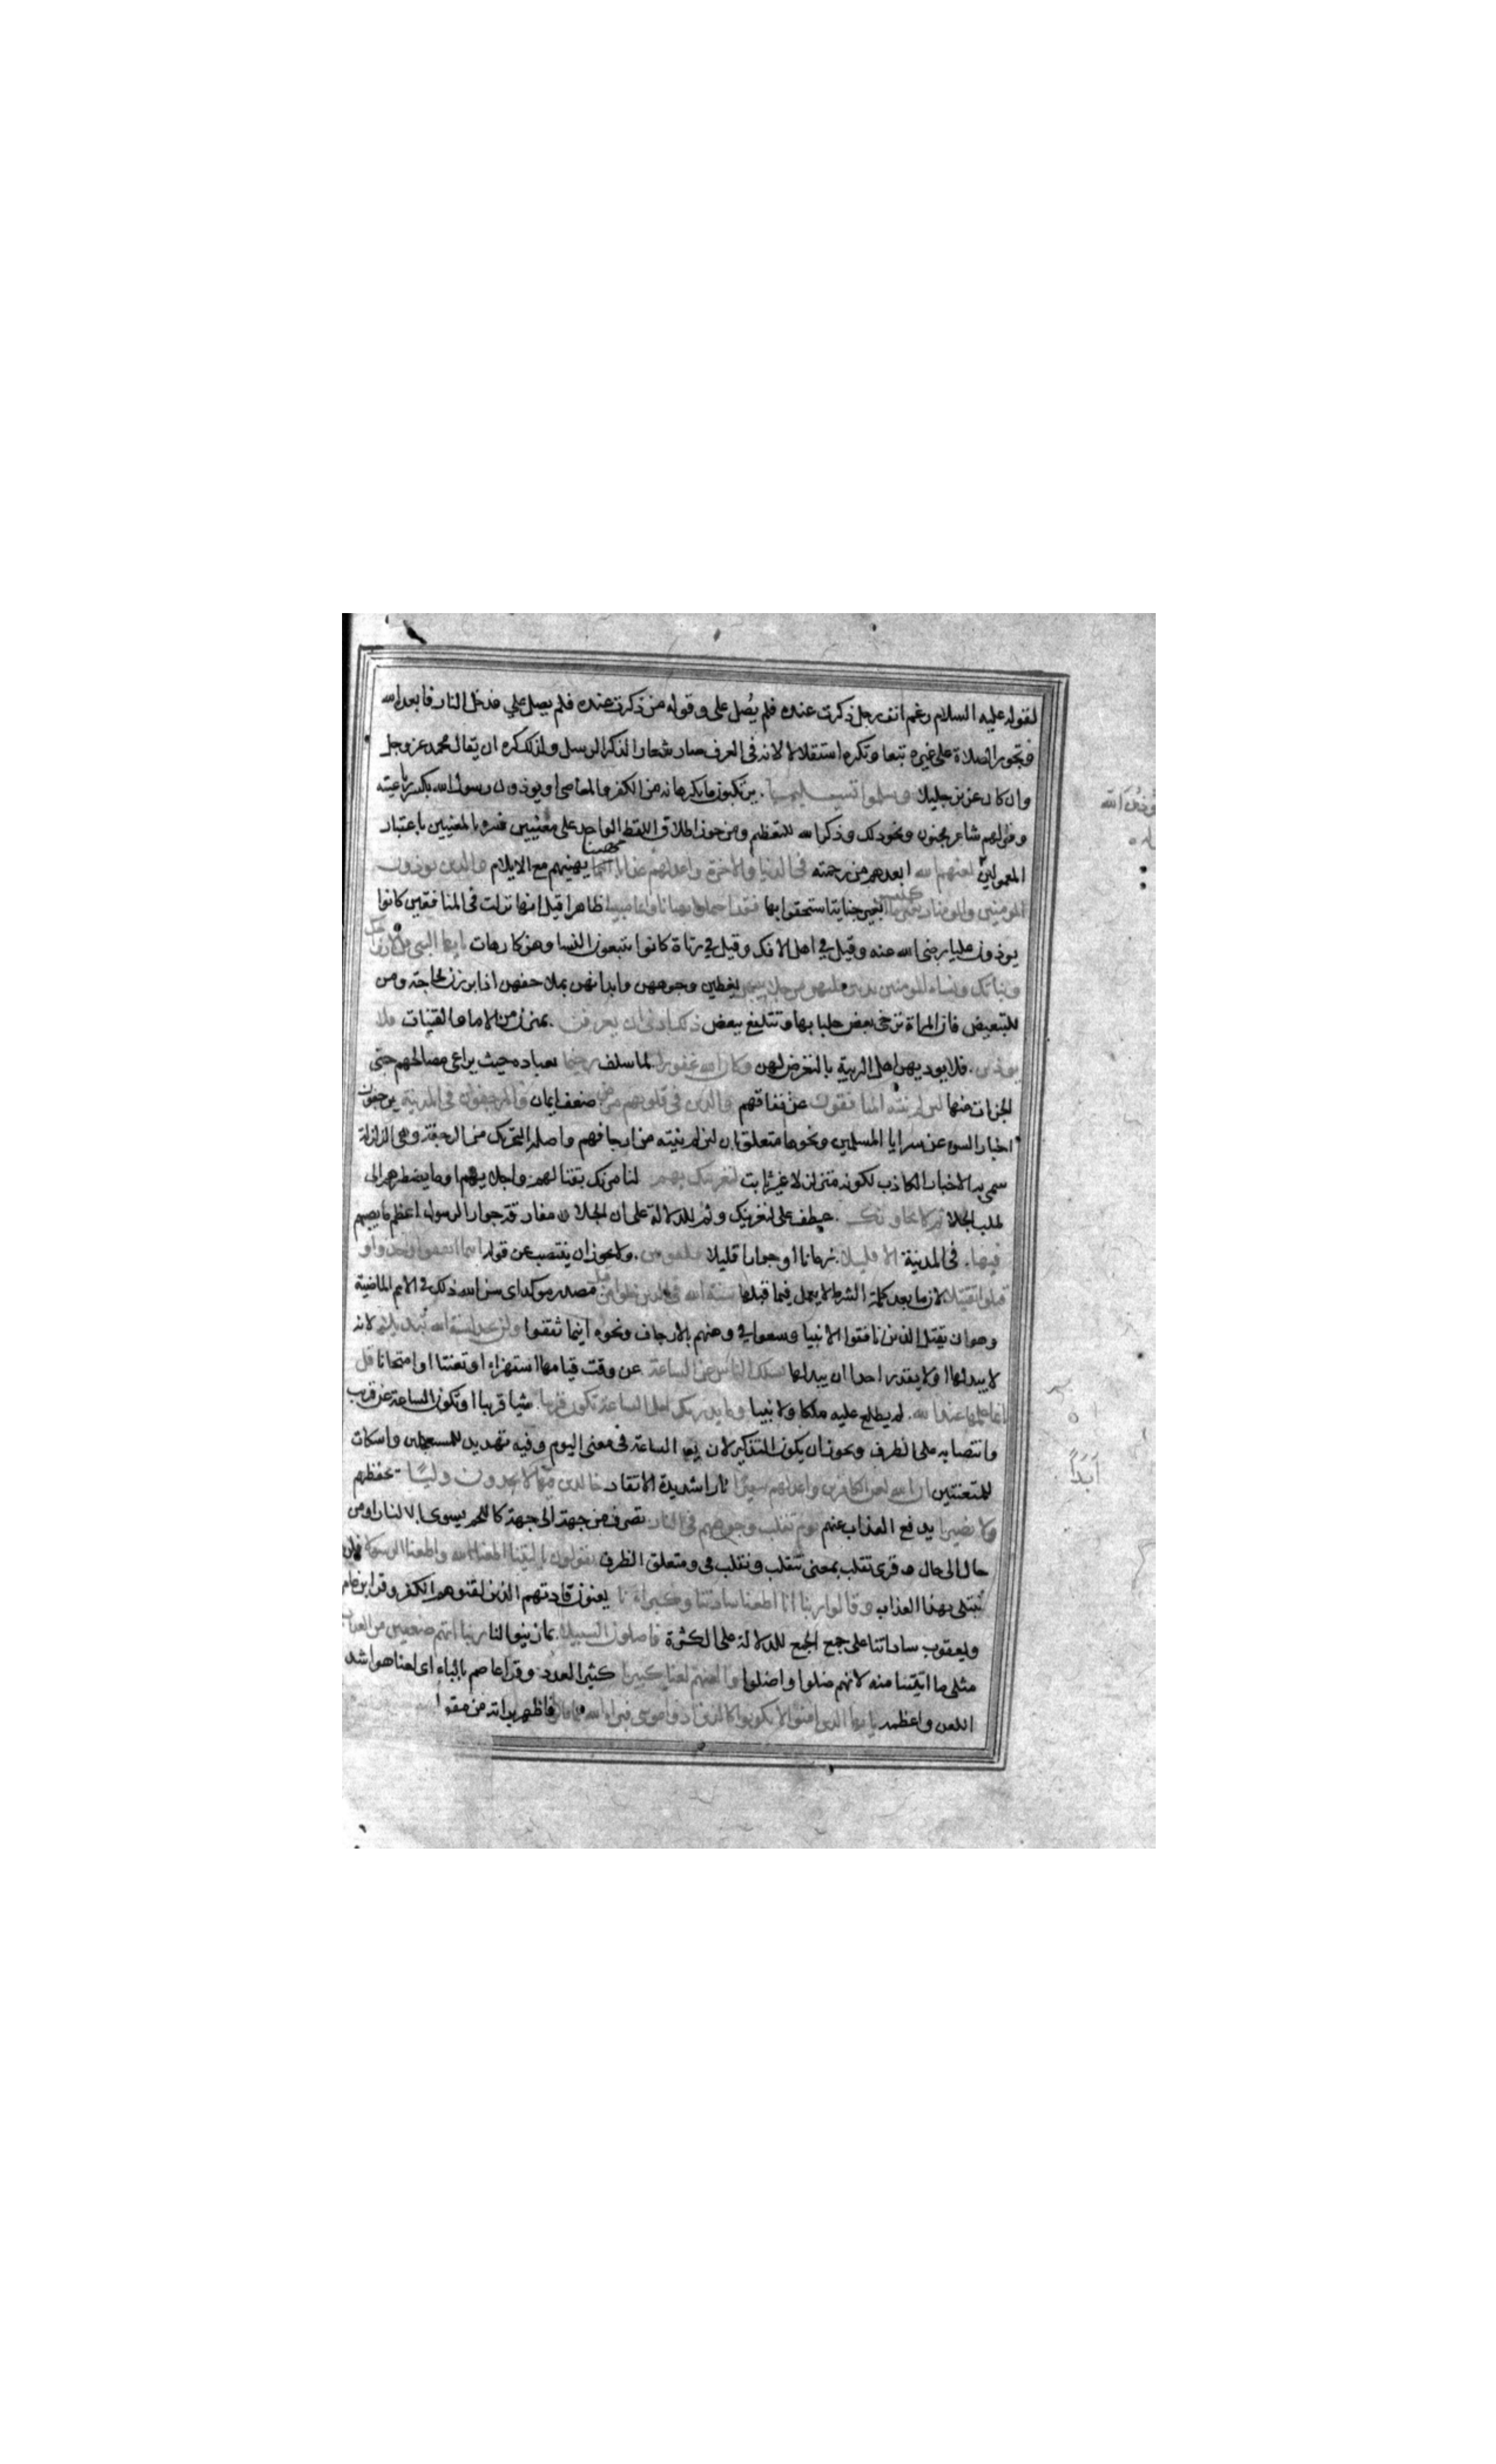 لقوله عليه السلام رغم انف رجل ذكرت عنده فلم يُصل على وقوله من ذكرت عنده فلم يصل علي فدخل النار فابعده اسه
وتجوز الصلاة على غيره تبعا وتكره استقلالا لانه في العرف صار شعارا لذكر الرسل ولذلك كره ان يقال محمد عز وجل
وان كان عزيز جليلا وسلموا تسليما يرتكبون ما يكرهانه من الكفر والمعاصي او يوذون رسول اسه بكسر رباعيته
وقولهم شاعر مجنون ونحو ذلك وذكر اسه للتعظيم ومن جوز اطلاق اللفظ الواحد على معنيين فسره بالمعنيين باعتبار
المعمولين لعنهم اسه ابعدهم من رحمته في الدنيا والاخرة واعد لهم عذابا مهينا يهينهم مع الايلام والذين يوذون
المومنين والمومنات بغير ما اكتسبوا بغير جناية استحقوا بها فقد احتملوا بهتانا واثما مبينا ظاهرا قيل انها نزلت في المنافقين كانوا
يوذون عليا رضي اسه عنه وقيل في اهل الافك وقيل في زناة كانوا يتبعون النسا وهن كارهات يايها النبي قل لازواجك
وبناتك ونساء المومنين يدنين عليهن من جلابيبهن يغطين وجوههن وابدانهن بملاحفهن اذا برزن لحاجة ومن
للتبعيض فان المراة ترخى بعض جلبابها وتتلفع ببعض ذلك ادنى ان يعرفن يميزن من الاما والقينات فلا
يوذين فلا يوديهن اهل الريبة بالتعرض لهن وكان اسه غفورا لما سلف رحيما بعباده حيث يراعى مصالحهم حتى
الجزئات منها لين لم ينته المنافقون عن نفاقهم والذين في قلوبهم مرض ضعف ايمان والمرجفون في المدينة يرجفون
اخبار السوء عن سرايا المسلمين ونحوها متعلق بان لين لم ينته من ارجافهم واصله التحريك من الرجفة وهي الزلزلة
سمى به الاخبار الكاذب لكونه متزلزلا غير ثابت لنغرينك بهم لنامرنك بقتالهم واجلايهم او ما يضطرهم الى
طلب الجلا ثم لا يجاورونك عطف على لنغرينك وثم للدلالة على ان الجلا ومفارقة جوار الرسول اعظم ما يصيبهم
فيها في المدينة الا قليلا زمانا او جوارا قليلا ملعونين ولا يجوز ان ينتصب عن قوله اينما ثقفوا اخذوا و
قتلوا تقتيلا لان ما بعد كلمة الشرط لا يعمل فيما قبلها سنة اسه في الذين خلوا من قبل مصدر موكد اى سن اسه ذلك في الامم الماضية
وهو ان يقتل الذين نافقوا الانبيا وسعوا في وهنهم بالارجاف ونحوه اينما ثقفوا ولن تجد لسنة اسه تبديلا لانه
لا يبدلها او لا يقدر احد ان يبدلها يسئلك الناس عن الساعة عن وقت قيامها استهزاء او تعنتا او امتحانا قل
انما علمها عند اسه لم يطلع عليه ملكا ولا نبيا وما يدريك لعل الساعة تكون قريبا شيا قريبا او تكون الساعة عن قرب
وانتصابه على الظرف ويجوز ان يكون التذكير لان الساعة في معنى اليوم وفيه تهديد للمستعجلين واسكات
للمتعنتين ان اسه لعن الكافرين واعد لهم سعيرا نارا شديدة الاتقاد خالدين فيها لا يجدون وليًا يحفظهم
ولا نصيرا يدفع العذاب عنهم يوم تقلب وجوههم في النار تصرف من جهة الى جهة كاللحم يسوى بالنار او من
حال الى حال وقرى تقلب بمعنى تتقلب ونقلب ومتعلق الظرف يقولون يا ليتنا اطعنا اسه واطعنا الرسولا فلن
نبتلى بهذا العذاب وقالوا ربنا انا اطعنا سادتنا وكبراءنا يعنون قادتهم الذين لقنوهم الكفر وقرا ابن عامر
ويعقوب ساداتنا على جمع الجمع للدلالة على الكثرة فاضلونا السبيلا بما زينوا لنا ربنا اتهم ضعفين من العذاب
مثلى ما اتيتنا منه لانهم ضلوا واضلوا والعنهم لعنا كبيرا كثير العدد وقرا عاصم بالباء اى لعنا هو اشد
اللعن واعظمه يا ايها الذين امنوا لا تكونوا كالذين اذوا موسى فبراه اسه مما قالوا فاظهر براته من مقو
أبَدًا